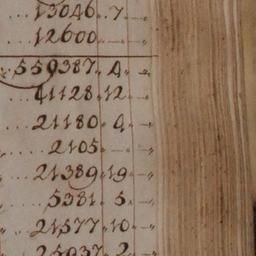 13046. 7. —
12600 . — . —
559387. 4. —
41128. 12. —
21180. 4. —
2105. — . —
21389. 19. —
5381. 5. —
21577. 10. —
25937. 2. —